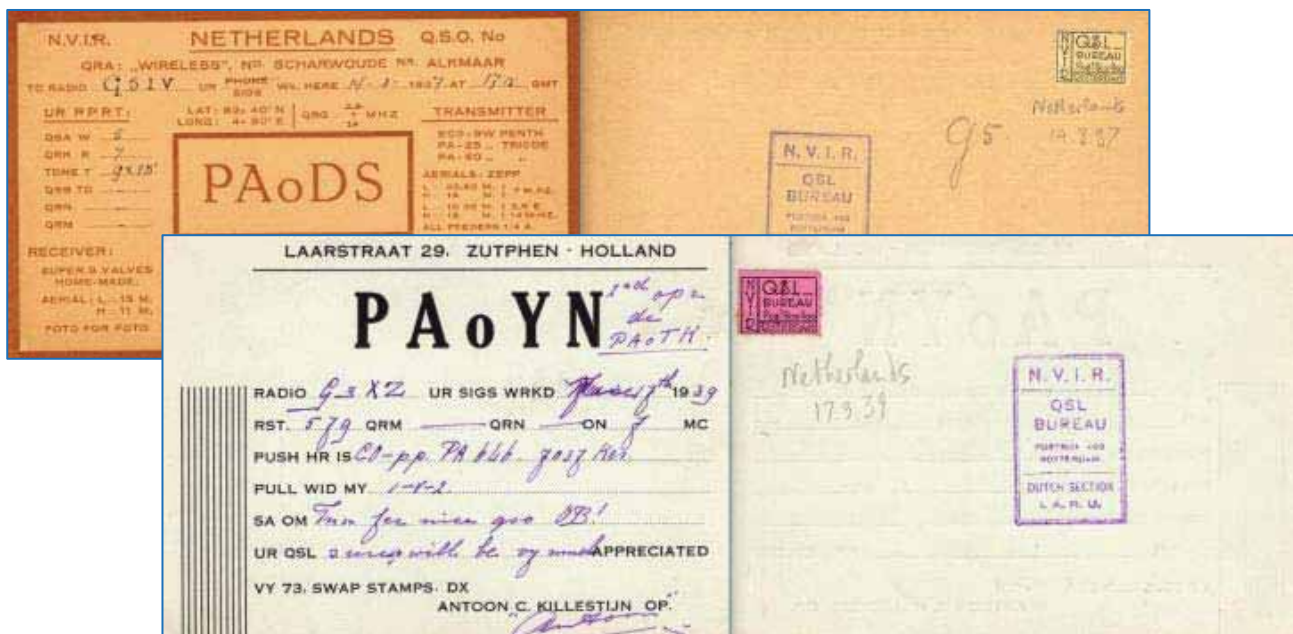 N.V.I.R. NETHERLANDS Q.S.O. No
QRA: „WIRELESS", ND. SCHARWOUDE NR. ALKMAAR
TO RADIO G5IV UR PHONE SIGS WL HERE 1937 AT GMT
UR RPRT:
QSA W 5
QRK R 7
TONE T
QSB TO
QRN
QRM
LAT: 40' N
LONG: 4° 50' E
QRG MHZ
TRANSMITTER
PENTH
PA-25 „ TRIODE
PA-50 „ „
AERIALS: ZEPP
ALL FEEDERS 1/4 λ.
PAoDS
RECEIVER:
SUPER 9 VALVES
HOME-MADE.
AERIAL: L - 15 M.
H - 11 M.
FOTO FOR FOTO
NVIR QSL
BUREAU
Netherlands
g5
N.V.I.R.
QSL
BUREAU
POSTBUS 400
ROTTERDAM
LAARSTRAAT 29. ZUTPHEN - HOLLAND
PAoYN
2nd opr
de
PAoTK.
RADIO G3XZ UR SIGS WRKD 7th 1939
RST. 579 QRM QRN ON 7 MC
PUSH HR IS CO-pp. PA
PULL WID MY 1-V-2
SA OM Tnx fer nice qso OB!
UR QSL will be vy much APPRECIATED
VY 73. SWAP STAMPS. DX
ANTOON C. KILLESTIJN OP.
"Antoon"
NVIR QSL
BUREAU
Netherlands
17.3.39
N.V.I.R.
QSL
BUREAU
POSTBUS 400
ROTTERDAM
DUTCH SECTION
I.A.R.U.